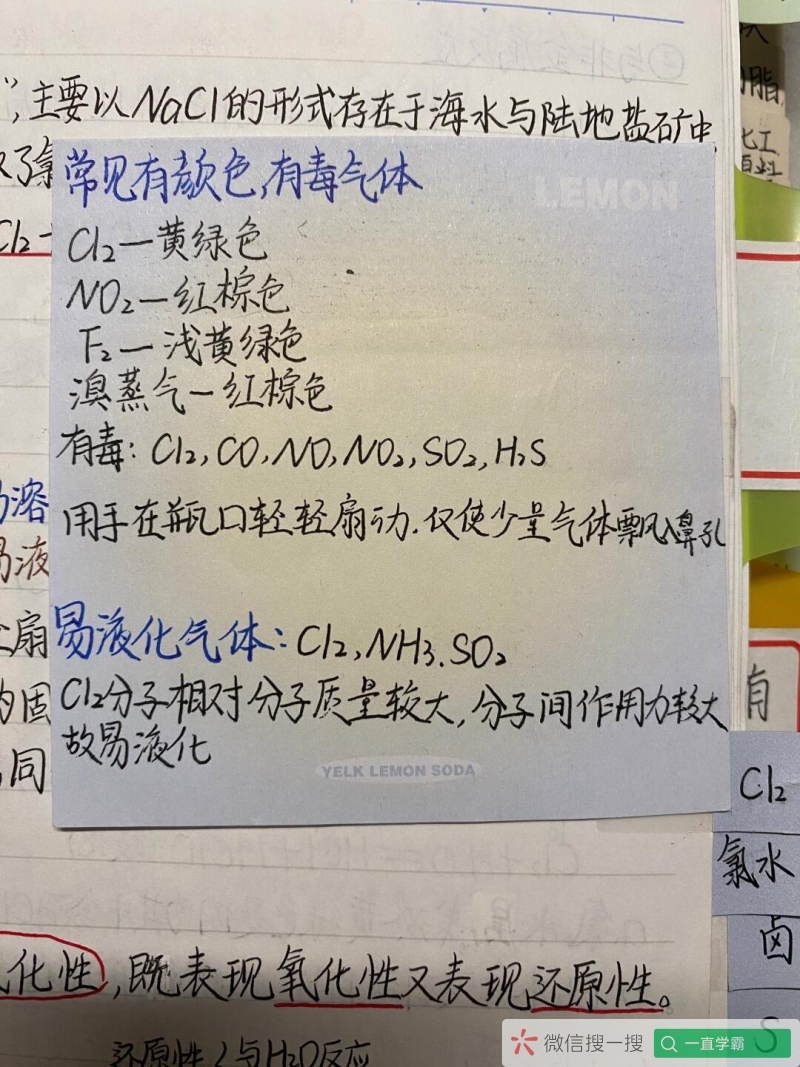 ②与非金属反应
,主要以NaCl的形式存在于海水与陆地盐矿中
了氯
Cl₂一
常见有颜色,有毒气体
LEMON
Cl₂一黄绿色
NO₂一红棕色
F₂一浅黄绿色
溴蒸气一红棕色
有毒:Cl₂,CO,NO,NO₂,SO₂,H₂S
用手在瓶口轻轻扇动.仅使少量气体飘入鼻孔
易液化气体:Cl₂,NH₃.SO₂
Cl₂分子相对分子质量较大,分子间作用力较大
故易液化
YELK LEMON SODA
溶
易液
扇
的固
同
脂
化工
原料
有
Cl₂
氯水
卤
S
化性,既表现氧化性又表现还原性。
还原性(与H₂O反应
微信搜一搜
一直学霸